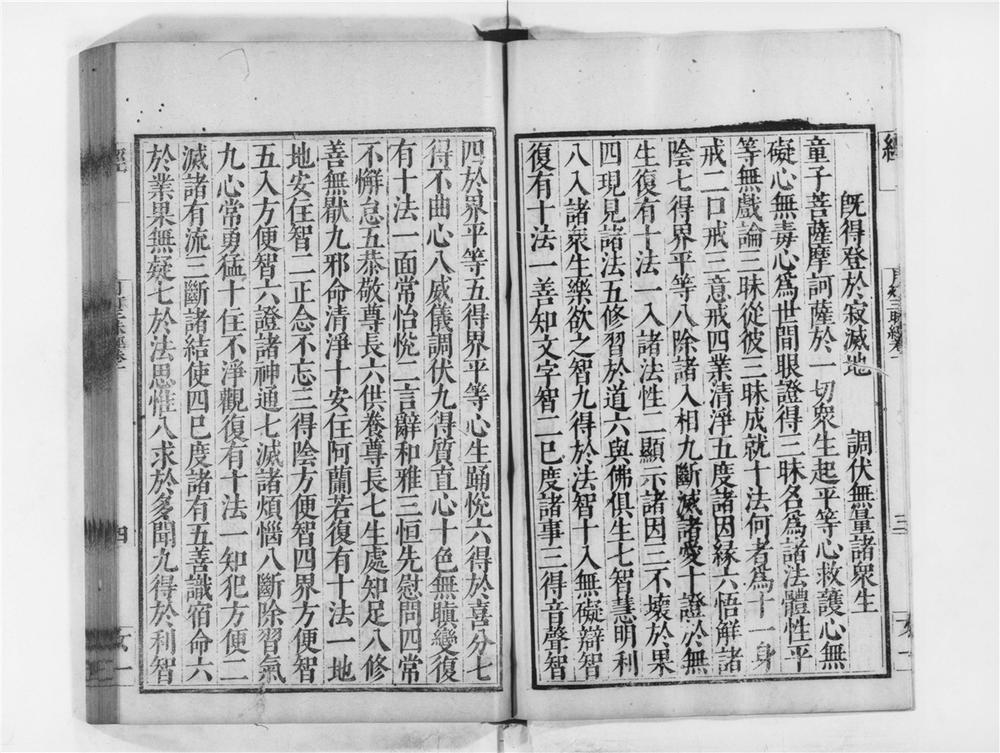 既得登於寂滅地　調伏無量諸衆生
童子菩薩摩訶薩於一切衆生起平等心救護心無
礙心無毒心爲世間眼證得三昧名爲諸法體性平
等無戲論三昧從彼三昧成就十法何者爲十一身
戒二口戒三意戒四業清淨五度諸因緣六悟解諸
陰七得界平等八除諸入相九斷滅諸愛十證於無
生復有十法一入諸法性二顯示諸因三不壞於果
四現見諸法五修習於道六與佛俱生七智慧明利
八入諸衆生樂欲之智九得於法智十入無礙辯智
復有十法一善知文字智二已度諸事三得音聲智
四於界平等五得界平等心生踊悅六得於喜分七
得不曲心八威儀調伏九得質直心十色無瞋變復
有十法一面常怡悅二言辭和雅三恒先慰問四常
不懈怠五恭敬尊長六供養尊長七生處知足八修
善無猒九邪命清淨十安住阿蘭若復有十法一地
地安住智二正念不忘三得陰方便智四界方便智
五入方便智六證諸神通七滅諸煩惱八斷除習氣
九心常勇猛十住不淨觀復有十法一知犯方便二
滅諸有流三斷諸結使四已度諸有五善識宿命六
於業果無疑七於法思惟八求於多聞九得於利智
經
四